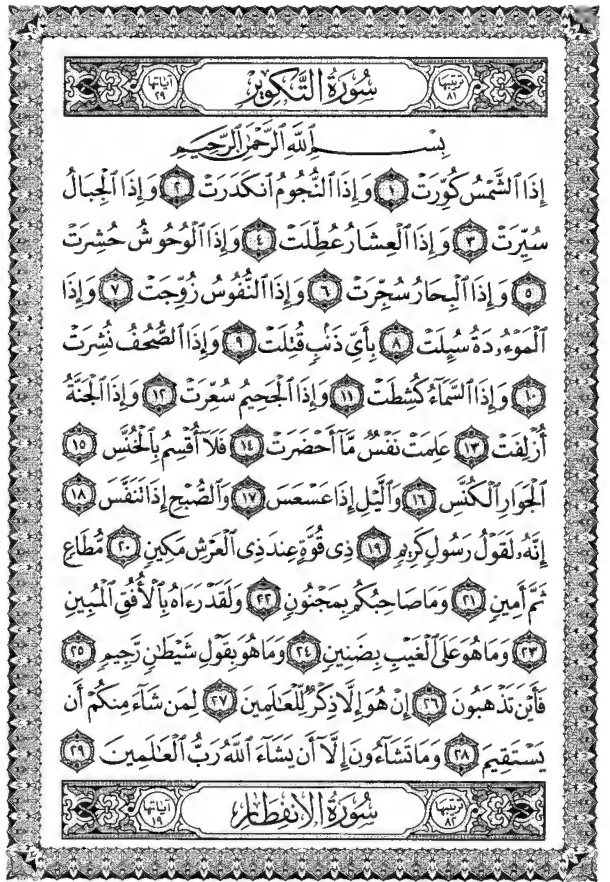 ترتيبها ٨١ سُورَةُ التَّكْوِيرِ آياتها ٢٩
بِسْمِ ٱللَّهِ ٱلرَّحْمَٰنِ ٱلرَّحِيمِ
إِذَا ٱلشَّمْسُ كُوِّرَتْ ١ وَإِذَا ٱلنُّجُومُ ٱنكَدَرَتْ ٢ وَإِذَا ٱلْجِبَالُ
سُيِّرَتْ ٣ وَإِذَا ٱلْعِشَارُ عُطِّلَتْ ٤ وَإِذَا ٱلْوُحُوشُ حُشِرَتْ
٥ وَإِذَا ٱلْبِحَارُ سُجِّرَتْ ٦ وَإِذَا ٱلنُّفُوسُ زُوِّجَتْ ٧ وَإِذَا
ٱلْمَوْءُۥدَةُ سُئِلَتْ ٨ بِأَيِّ ذَنۢبٍ قُتِلَتْ ٩ وَإِذَا ٱلصُّحُفُ نُشِرَتْ
١٠ وَإِذَا ٱلسَّمَآءُ كُشِطَتْ ١١ وَإِذَا ٱلْجَحِيمُ سُعِّرَتْ ١٢ وَإِذَا ٱلْجَنَّةُ
أُزْلِفَتْ ١٣ عَلِمَتْ نَفْسٌ مَّآ أَحْضَرَتْ ١٤ فَلَآ أُقْسِمُ بِٱلْخُنَّسِ ١٥
ٱلْجَوَارِ ٱلْكُنَّسِ ١٦ وَٱلَّيْلِ إِذَا عَسْعَسَ ١٧ وَٱلصُّبْحِ إِذَا تَنَفَّسَ ١٨
إِنَّهُۥ لَقَوْلُ رَسُولٍ كَرِيمٍ ١٩ ذِى قُوَّةٍ عِندَ ذِى ٱلْعَرْشِ مَكِينٍ ٢٠ مُّطَاعٍ
ثَمَّ أَمِينٍ ٢١ وَمَا صَاحِبُكُم بِمَجْنُونٍ ٢٢ وَلَقَدْ رَءَاهُ بِٱلْأُفُقِ ٱلْمُبِينِ
٢٣ وَمَا هُوَ عَلَى ٱلْغَيْبِ بِضَنِينٍ ٢٤ وَمَا هُوَ بِقَوْلِ شَيْطَٰنٍ رَّجِيمٍ ٢٥
فَأَيْنَ تَذْهَبُونَ ٢٦ إِنْ هُوَ إِلَّا ذِكْرٌ لِّلْعَٰلَمِينَ ٢٧ لِمَن شَآءَ مِنكُمْ أَن
يَسْتَقِيمَ ٢٨ وَمَا تَشَآءُونَ إِلَّآ أَن يَشَآءَ ٱللَّهُ رَبُّ ٱلْعَٰلَمِينَ ٢٩
ترتيبها ٨٢ سُورَةُ الانفِطَارِ آياتها ١٩